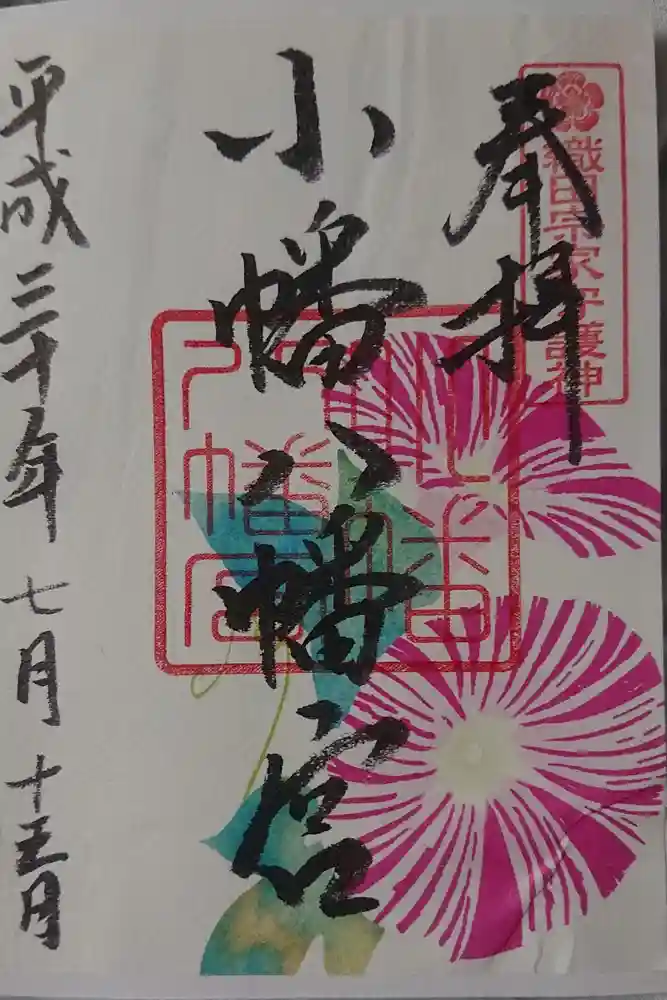 奉拝
織田宗家守護神
小幡八幡宮
小幡八幡宮
平成三十年七月十五日